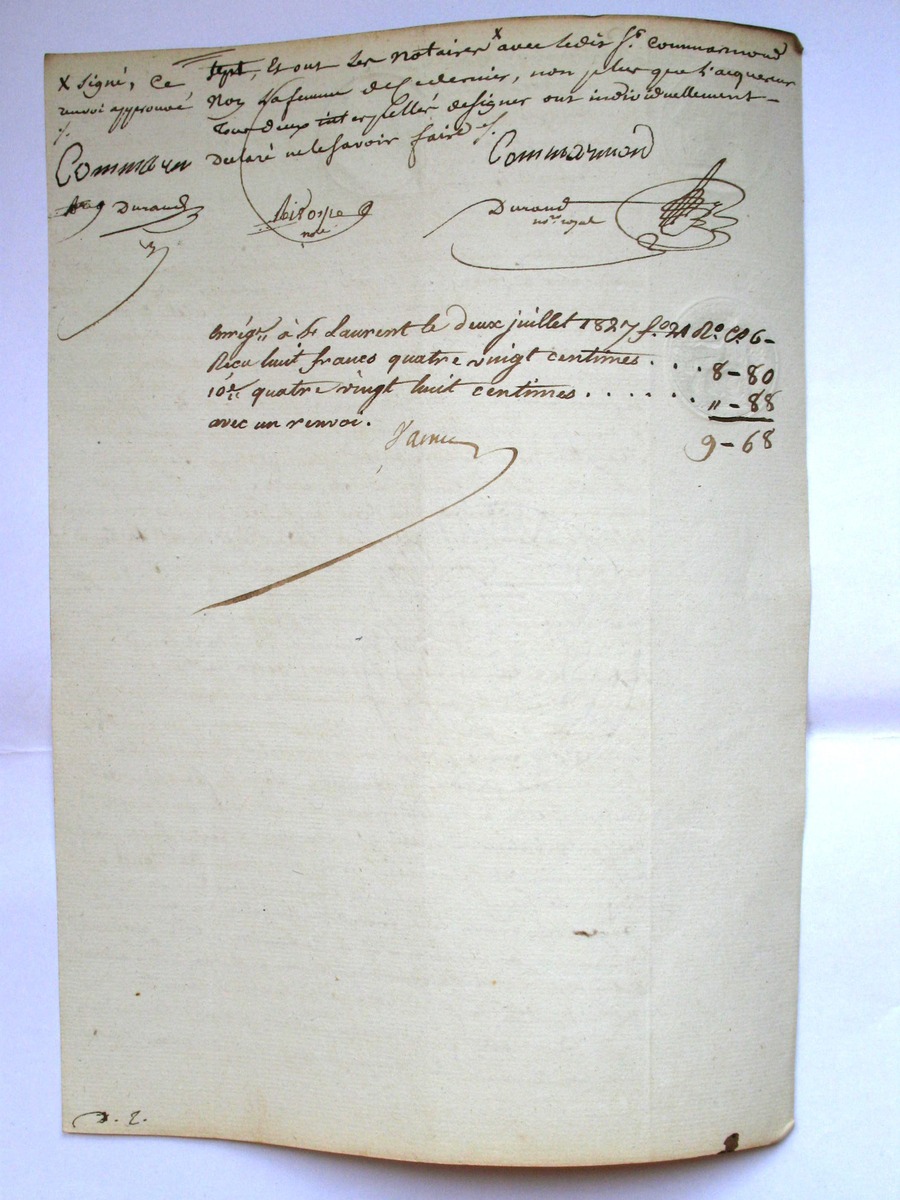 sept, Et ont les notaires x avec ledit Sr. Commarmond
non la femme de ce dernier, non plus que l'acquereur
Tous deux interpellés de signer ont individuellement
declaré ne le savoir faire ./.
x signé, Ce
renvoi approuvé
./.
Commarm Commarmond
Durand note Durand
nre. royal
Enrégt. à St Laurent le deux juillet 1827 fo. 21 Ro. C. 6-
Recu huit francs quatre vingt centimes . . . 8-80
10e. quatre vingt huit centimes . . . . . . . „-88
avec un renvoi.
9-68
D. 2.